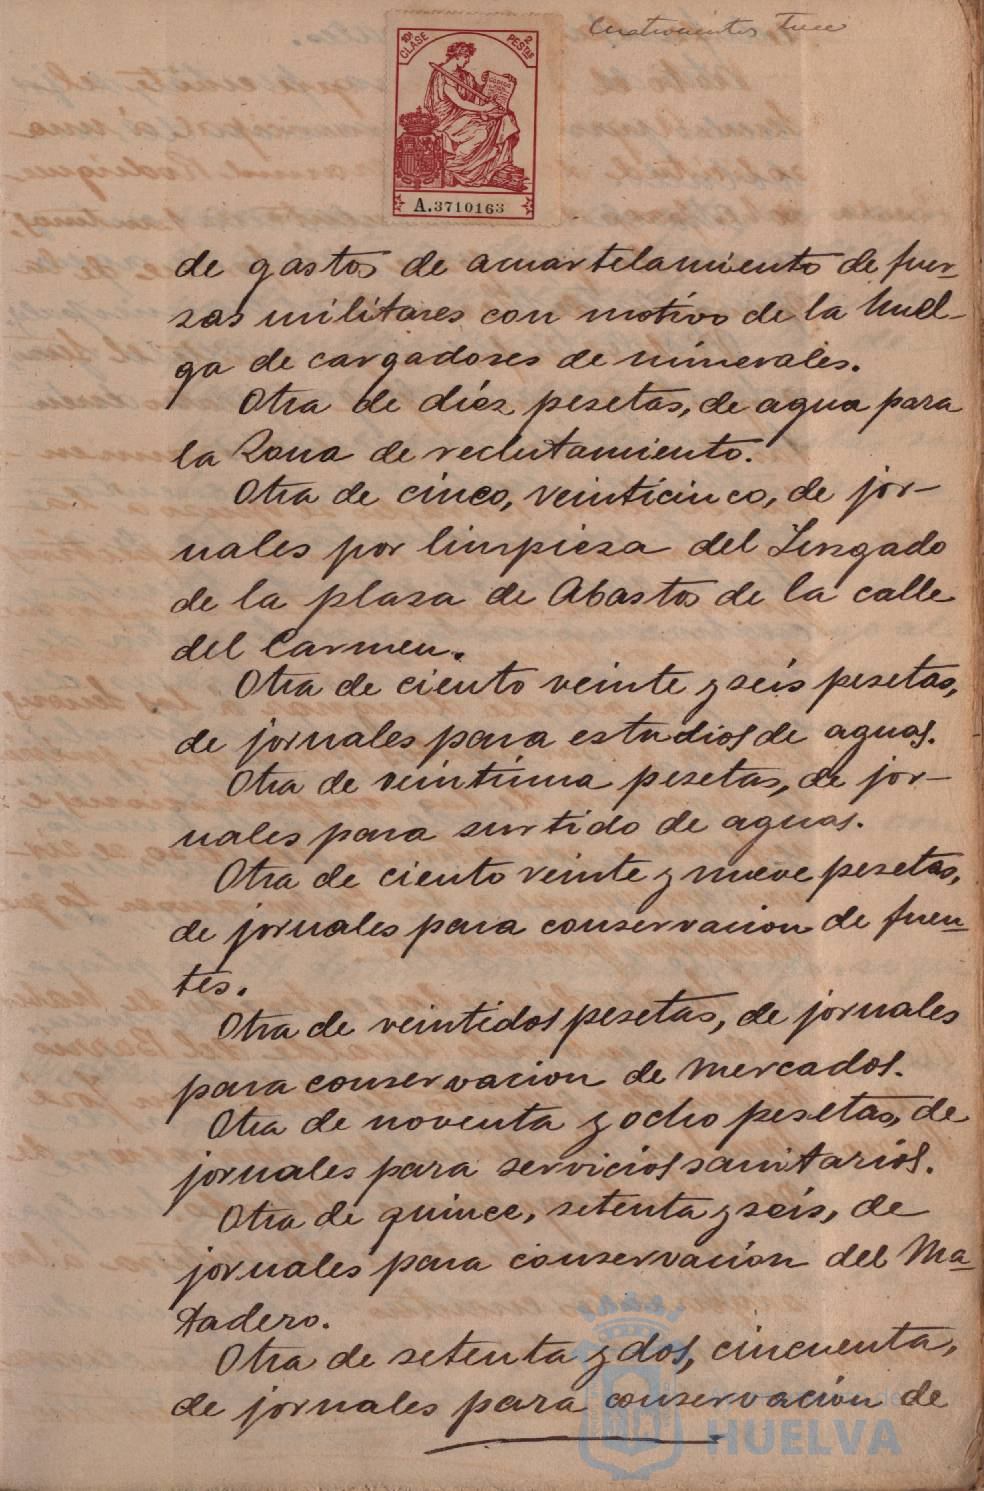 Cuatrocientos Trece
10ª CLASE
2 PESTAS
A.3710163
de gastos de acuartelamiento de fuer-
zas militares con motivo de la huel-
ga de cargadores de minerales.
Otra de diez pesetas, de agua para
la Zona de reclutamiento.
Otra de cinco, veinticinco, de jor-
nales por limpieza del Juzgado
de la plaza de Abastos de la calle
del Carmen.
Otra de ciento veinte y seis pesetas,
de jornales para estudios de aguas.
Otra de veintiuna pesetas, de jor-
nales para surtido de aguas.
Otra de ciento veinte y nueve pesetas,
de jornales para conservacion de fuen-
tes.
Otra de veintidos pesetas, de jornales
para conservacion de mercados.
Otra de noventa y ocho pesetas, de
jornales para servicios sanitarios.
Otra de quince, setenta y seis, de
jornales para conservación del Ma-
tadero.
Otra de setenta y dos, cincuenta,
de jornales para conservación de
HUELVA